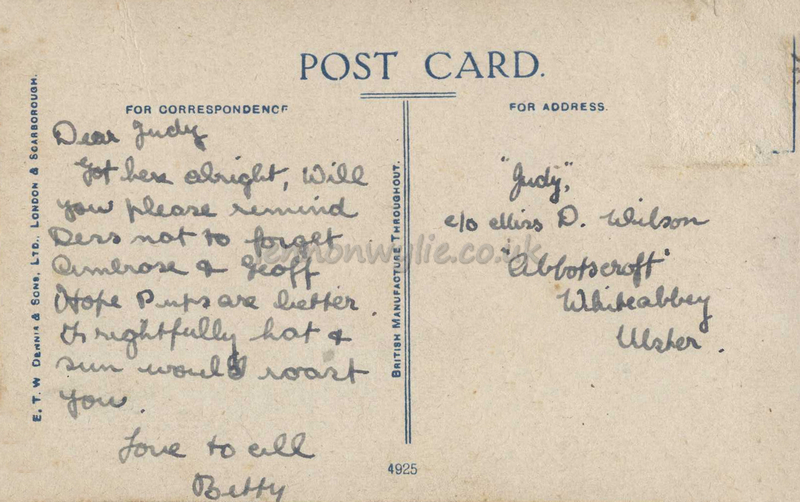 POST CARD.
FOR CORRESPONDENCE
FOR ADDRESS.
E. T. W. DENNIS & SONS, LTD., LONDON & SCARBOROUGH.
BRITISH MANUFACTURE THROUGHOUT.
Dear Judy
Got here alright, Will
you please remind
Dess not to forget
Ambrose & Geoff
Hope Pups are better.
Is rightfully hot &
sun would roast
you.
Love to all
Betty
"Judy",
c/o Miss D. Wilson
"Abbotscroft"
Whiteabbey
Ulster.
4925
lennonwylie.co.uk